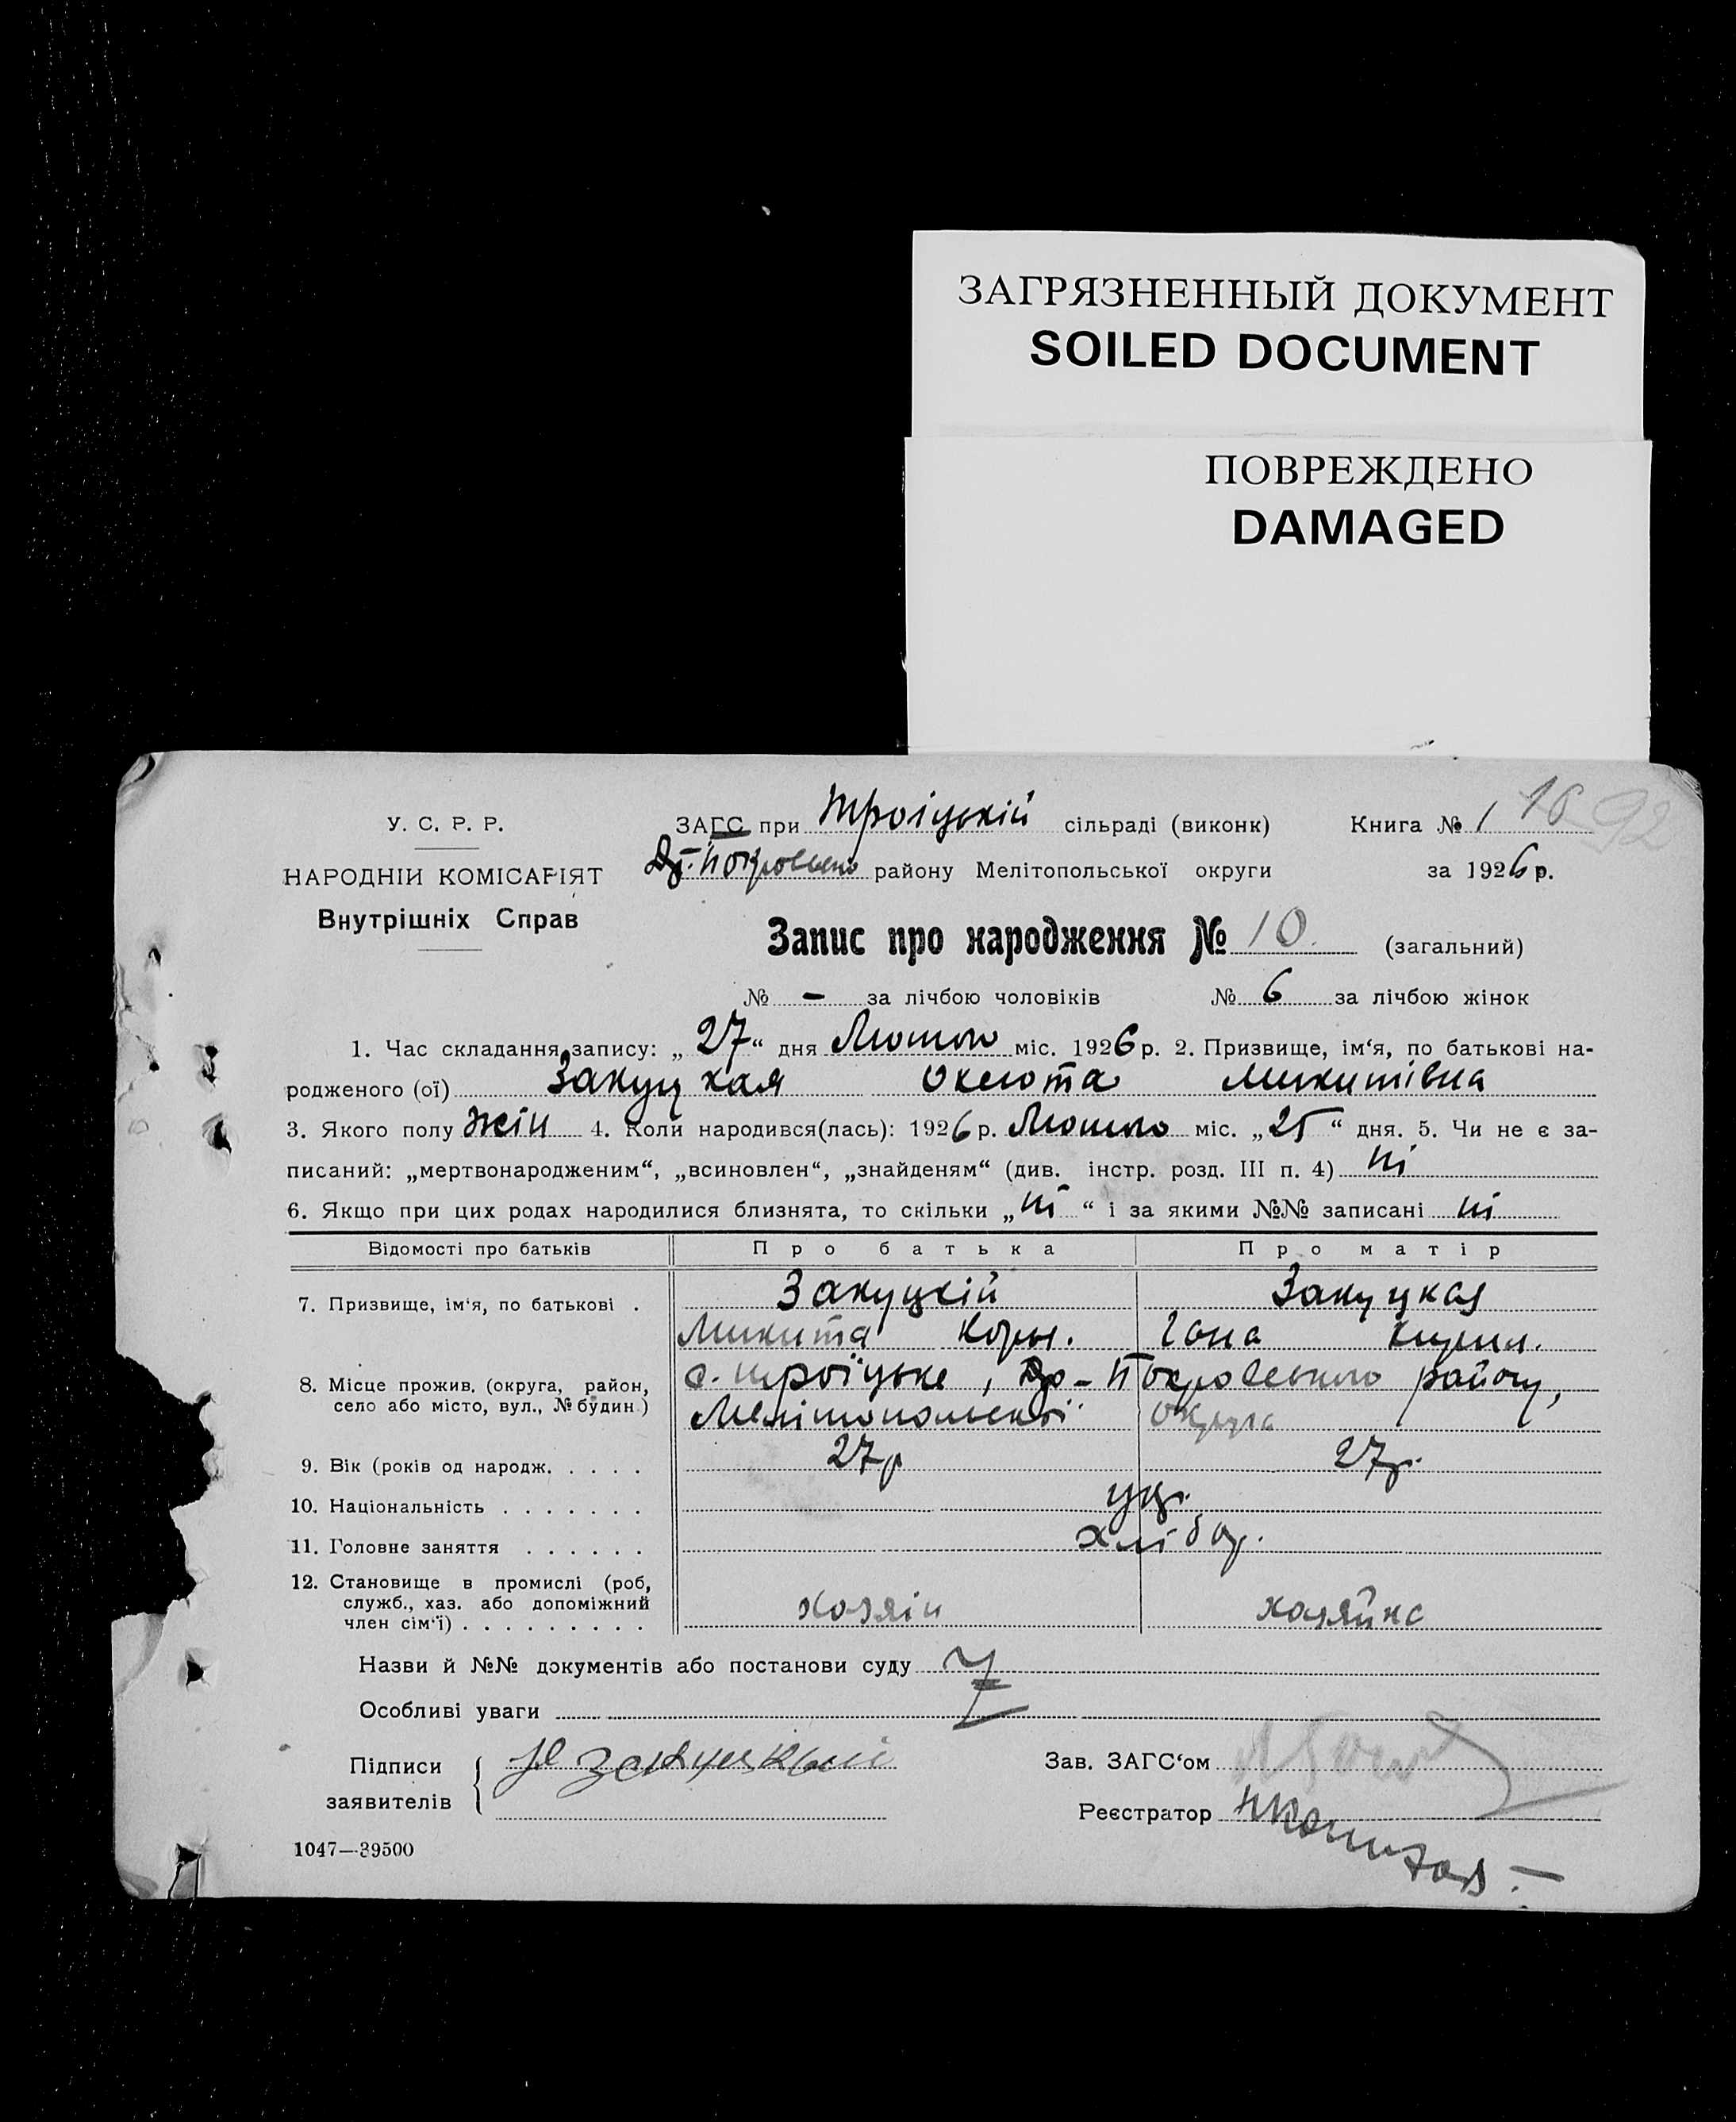 ЗАГРЯЗНЕННЫЙ ДОКУМЕНТ
SOILED DOCUMENT
ПОВРЕЖДЕНО
DAMAGED
У. С. Р. Р.
НАРОДНІЙ КОМІСАРІЯТ
Внутрішніх Справ
ЗАГС при Троіцькій сільраді (виконк)
району Мелітопольської округи
Книга № 1 16 92
за 1926 р.
Запис про народження № 10. (загальний)
№ – за лічбою чоловіків № 6 за лічбою жінок
1. Час складання запису: „27“ дня Лютого міс. 1926 р. 2. Призвище, ім‘я, по батькові на-
родженого (ої) Закуцкая Микитівна
3. Якого полу жін 4. Коли народився(лась): 1926 р. Лютого міс. „25“ дня. 5. Чи не є за-
писаний: „мертвонародженим“, „всиновлен“, „знайденям“ (див. інстр. розд. III п. 4) ні
6. Якщо при цих родах народилися близнята, то скільки „ні“ і за якими №№ записані ні
Відомості про батьків Про батька Про матір
7. Призвище, ім‘я, по батькові . Закуцкій Закуцкая
Микита Корн. Гана Кирил.
8. Місце прожив. (округа, район, с. Троїцьке, Др-Покровського району,
село або місто, вул., № будин.) Мелітопольскої округа
9. Вік (років од народж. . . . . 27р 27р.
10. Національність . . . . . . . укр.
11. Головне заняття . . . . . . хлібор.
12. Становище в промислі (роб,
служб., хаз. або допоміжний хозяін хозяйка
член сім‘ї) . . . . . . . . .
Назви й №№ документів або постанови суду
Особливі уваги
Підписи Закуцкый
заявителів
Зав. ЗАГС‘ом
Реєстратор
1047—39500